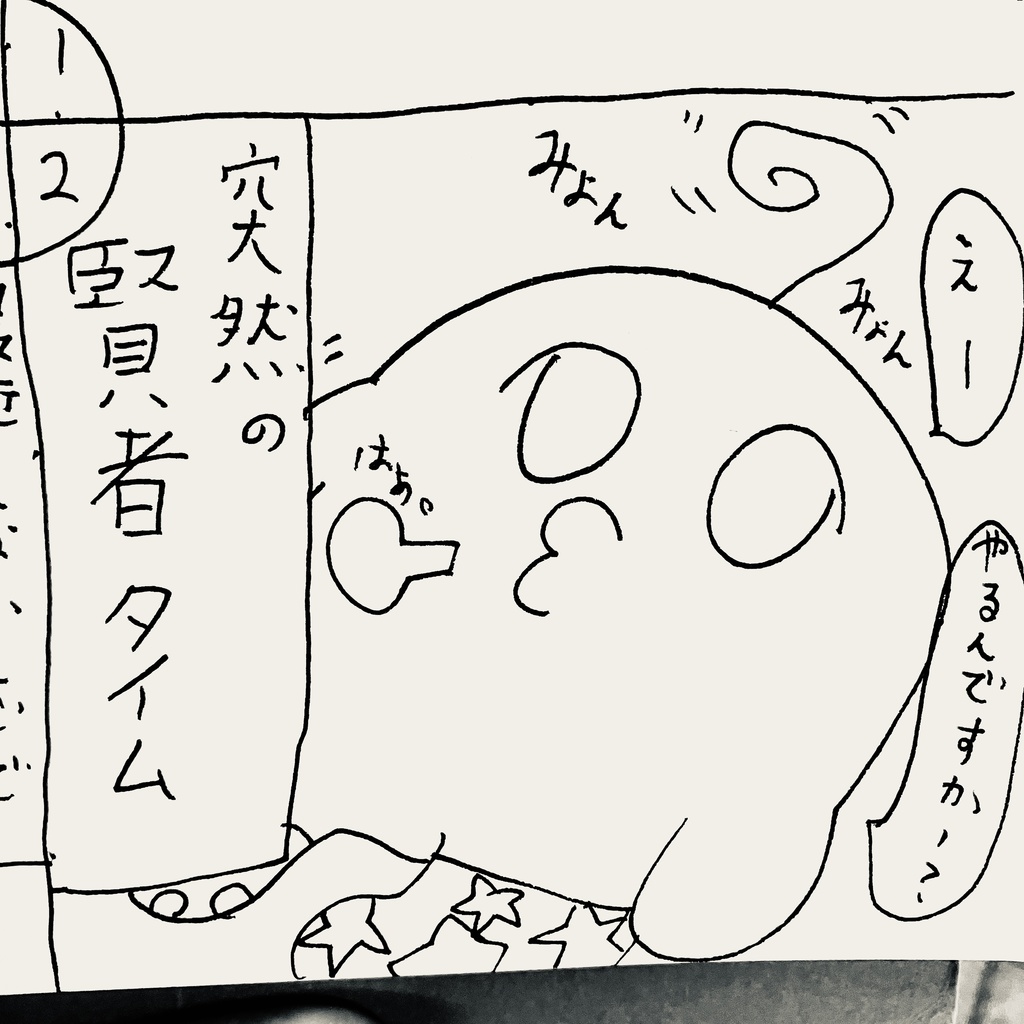 えー
やるんですかー?
みょん
みょん
はぁ。
突然の
賢者タイム
1
2